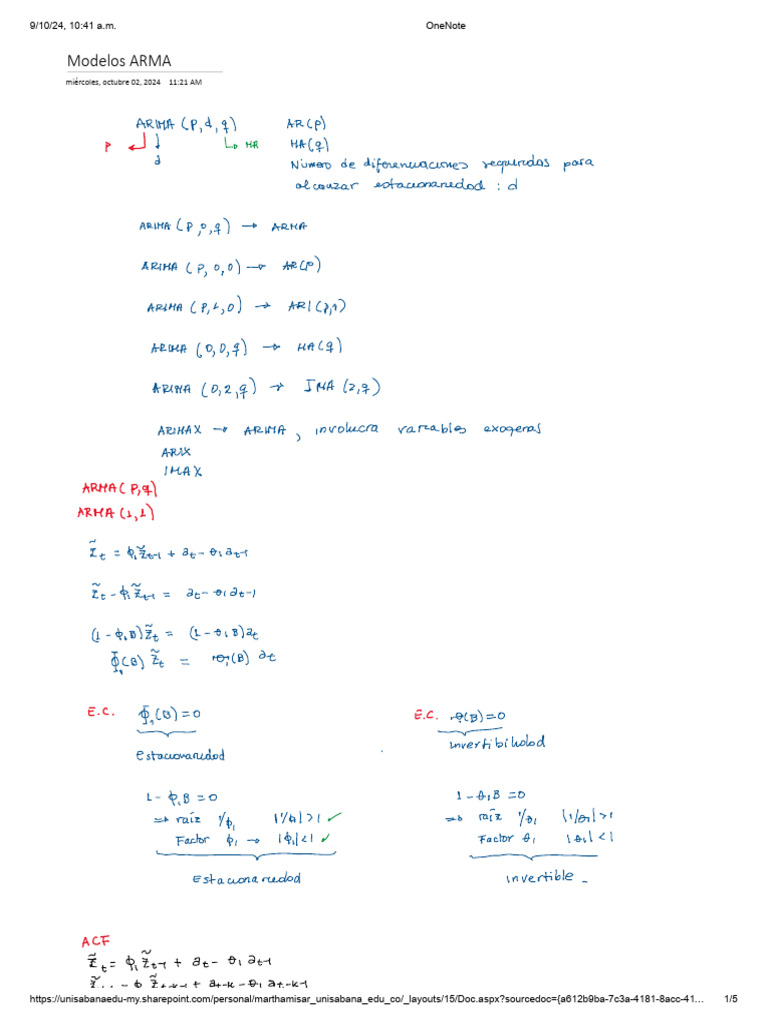 9/10/24, 10:41 a.m. OneNote
Modelos ARMA
miércoles, octubre 02, 2024 11:21 AM
ARIMA (p, d, q) AR(p)
p d MA MA(q)
Número de diferenciaciones requeridos para
alcanzar estacionariedad : d
ARIMA (p, 0, q) → ARMA
ARIMA (p, 0, 0) → AR(p)
ARIMA (p, 1, 0) → ARI(p,1)
ARIMA (0, 0, q) → MA(q)
ARIMA (0, 2, q) → IMA (2, q)
ARIMAX → ARIMA, involucra variables exogenas
ARIX
IMAX
ARMA(p,q)
ARMA (1,1)
Z̃t = ϕ1Z̃t-1 + at - θ1at-1
Z̃t - ϕ1Z̃t-1 = at - θ1at-1
(1 - ϕ1B)Z̃t = (1 - θ1B)at
Φ1(B) Z̃t = θ1(B) at
E.C. Φ1(B) = 0 E.C. θ(B) = 0
estacionariedad invertibilidad
1 - ϕ1B = 0 1 - θ1B = 0
⇒ raíz 1/ϕ1 |1/ϕ1| > 1 ✓ ⇒ raíz 1/θ1 |1/θ1| > 1
Factor ϕ1 → |ϕ1| < 1 ✓ Factor θ1 |θ1| < 1
Estacionariedad invertible
ACF
Z̃t = ϕ1 Z̃t-1 + at - θ1 at-1
https://unisabanaedu-my.sharepoint.com/personal/marthamisar_unisabana_edu_co/_layouts/15/Doc.aspx?sourcedoc={a612b9ba-7c3a-4181-8acc-41… 1/5